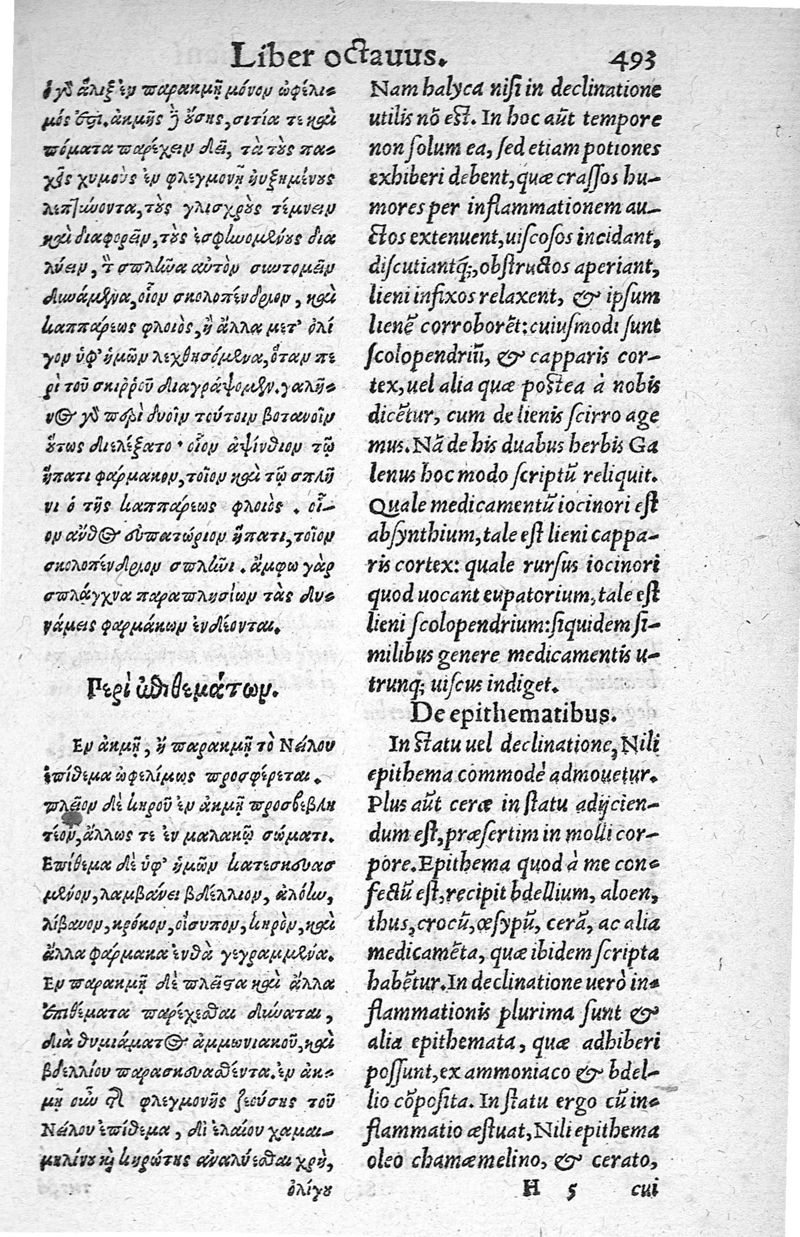 Liber octauus. 493
ὁ γὸ ἅλιξ ἐν παρακμῇ μόνον ὠφέλι-
μός ἐστι. ἀκμῆς ἢ οὔσης, σιτία τε καὶ
πόματα παρέχειν δεῖ, τὰ τοὺς πα-
χεῖς χυμοὺς ἐν φλεγμονῇ ηὐξημένους
λεπτύνοντα, τοὺς γλισχροὺς τέμνειν
καὶ διαφορεῖν, τοὺς ἐσφηνωμένους δια
λύειν, τ σπλῆνα αὐτὸν συντομεῖν
δυνάμενα, οἷον σκολοπένδριον, καὶ
καππάρεως φλοιὸς, ἢ ἄλλα μετ' ὀλί
γον ὑφ' ἡμῶν λεχθησόμενα, ὅταν πε
ρὶ τοῦ σκιῤῥοῦ διαγράψομεν. γαλη-
νὸς γὸ περὶ δυοῖν τούτοιν βοτανοῖν
οὕτως διελέξατο· οἷον ἀψίνθιον τῷ
ἥπατι φάρμακον, τοῖον καὶ τῷ σπλη
νὶ ὁ τῆς καππάρεως φλοιὸς. οἷ-
ον αὖθις εὐπατώριον ἥπατι, τοῖον
σκολοπένδριον σπληνὶ. ἄμφω γὰρ
σπλάγχνα παραπλησίων τὰς δυ-
νάμεις φαρμάκων ἐνδέονται.
Περὶ ἐπιθεμάτων.
Ἐν ἀκμῇ, ἢ παρακμῇ τὸ Νείλου
ἐπίθεμα ὠφελίμως προσφέρεται.
πλεῖον δὲ κηροῦ ἐν ἀκμῇ προσβεβλη
τέον, ἄλλως τε ἐν μαλακῷ σώματι.
Ἐπίθεμα δὲ ὑφ' ἡμῶν κατεσκευασ
μένον, λαμβάνει βδέλλιον, ἀλόην,
λίβανον, κρόκον, οἴσυπον, κηρὸν, καὶ
ἄλλα φάρμακα ἐνθὰ γεγραμμένα.
Ἐν παρακμῇ δὲ πλεῖστα καὶ ἄλλα
ἐπιθέματα παρέχεσθαι δύναται,
διὰ θυμιάματος ἀμμωνιακοῦ, καὶ
βδελλίου παρασκευασθέντα. ἐν ἀκ-
μῇ οὖν τῆς φλεγμονῆς ζεούσης τοῦ
Νείλου ἐπίθεμα, δι ἐλαίου χαμαι-
μηλίνου καὶ κηρώτης ἀναλύεσθαι χρὴ,
ὀλίγου
Nam halyca nisi in declinatione
utilis nō est. In hoc aūt tempore
non solum ea, sed etiam potiones
exhiberi debent, quæ crassos hu-
mores per inflammationem au-
ctos extenuent, uiscosos incidant,
discutiantq́;, obstructos aperiant,
lieni infixos relaxent, & ipsum
lienē corroborēt: cuiusmodi sunt
scolopendriū, & capparis cor-
tex, uel alia quæ postea à nobis
dicētur, cum de lienis scirro age
mus. Nā de his duabus herbis Ga
lenus hoc modo scriptū reliquit.
Quale medicamentū iocinori est
absynthium, tale est lieni cappa-
ris cortex: quale rursus iocinori
quod uocant eupatorium, tale est
lieni scolopendrium: siquidem si-
milibus genere medicamentis u-
trunq; uiscus indiget.
De epithematibus.
In statu uel declinatione, Nili
epithema commodè admouetur.
Plus aūt ceræ in statu adijcien-
dum est, præsertim in molli cor-
pore. Epithema quod à me con-
fectū est, recipit bdellium, aloen,
thus, crocū, œsypū, cerā, ac alia
medicamēta, quæ ibidem scripta
habētur. In declinatione uerò in-
flammationis plurima sunt &
alia epithemata, quæ adhiberi
possunt, ex ammoniaco & bdel-
lio cōposita. In statu ergo cū in-
flammatio æstuat, Nili epithema
oleo chamæmelino, & cerato,
H 5 cui